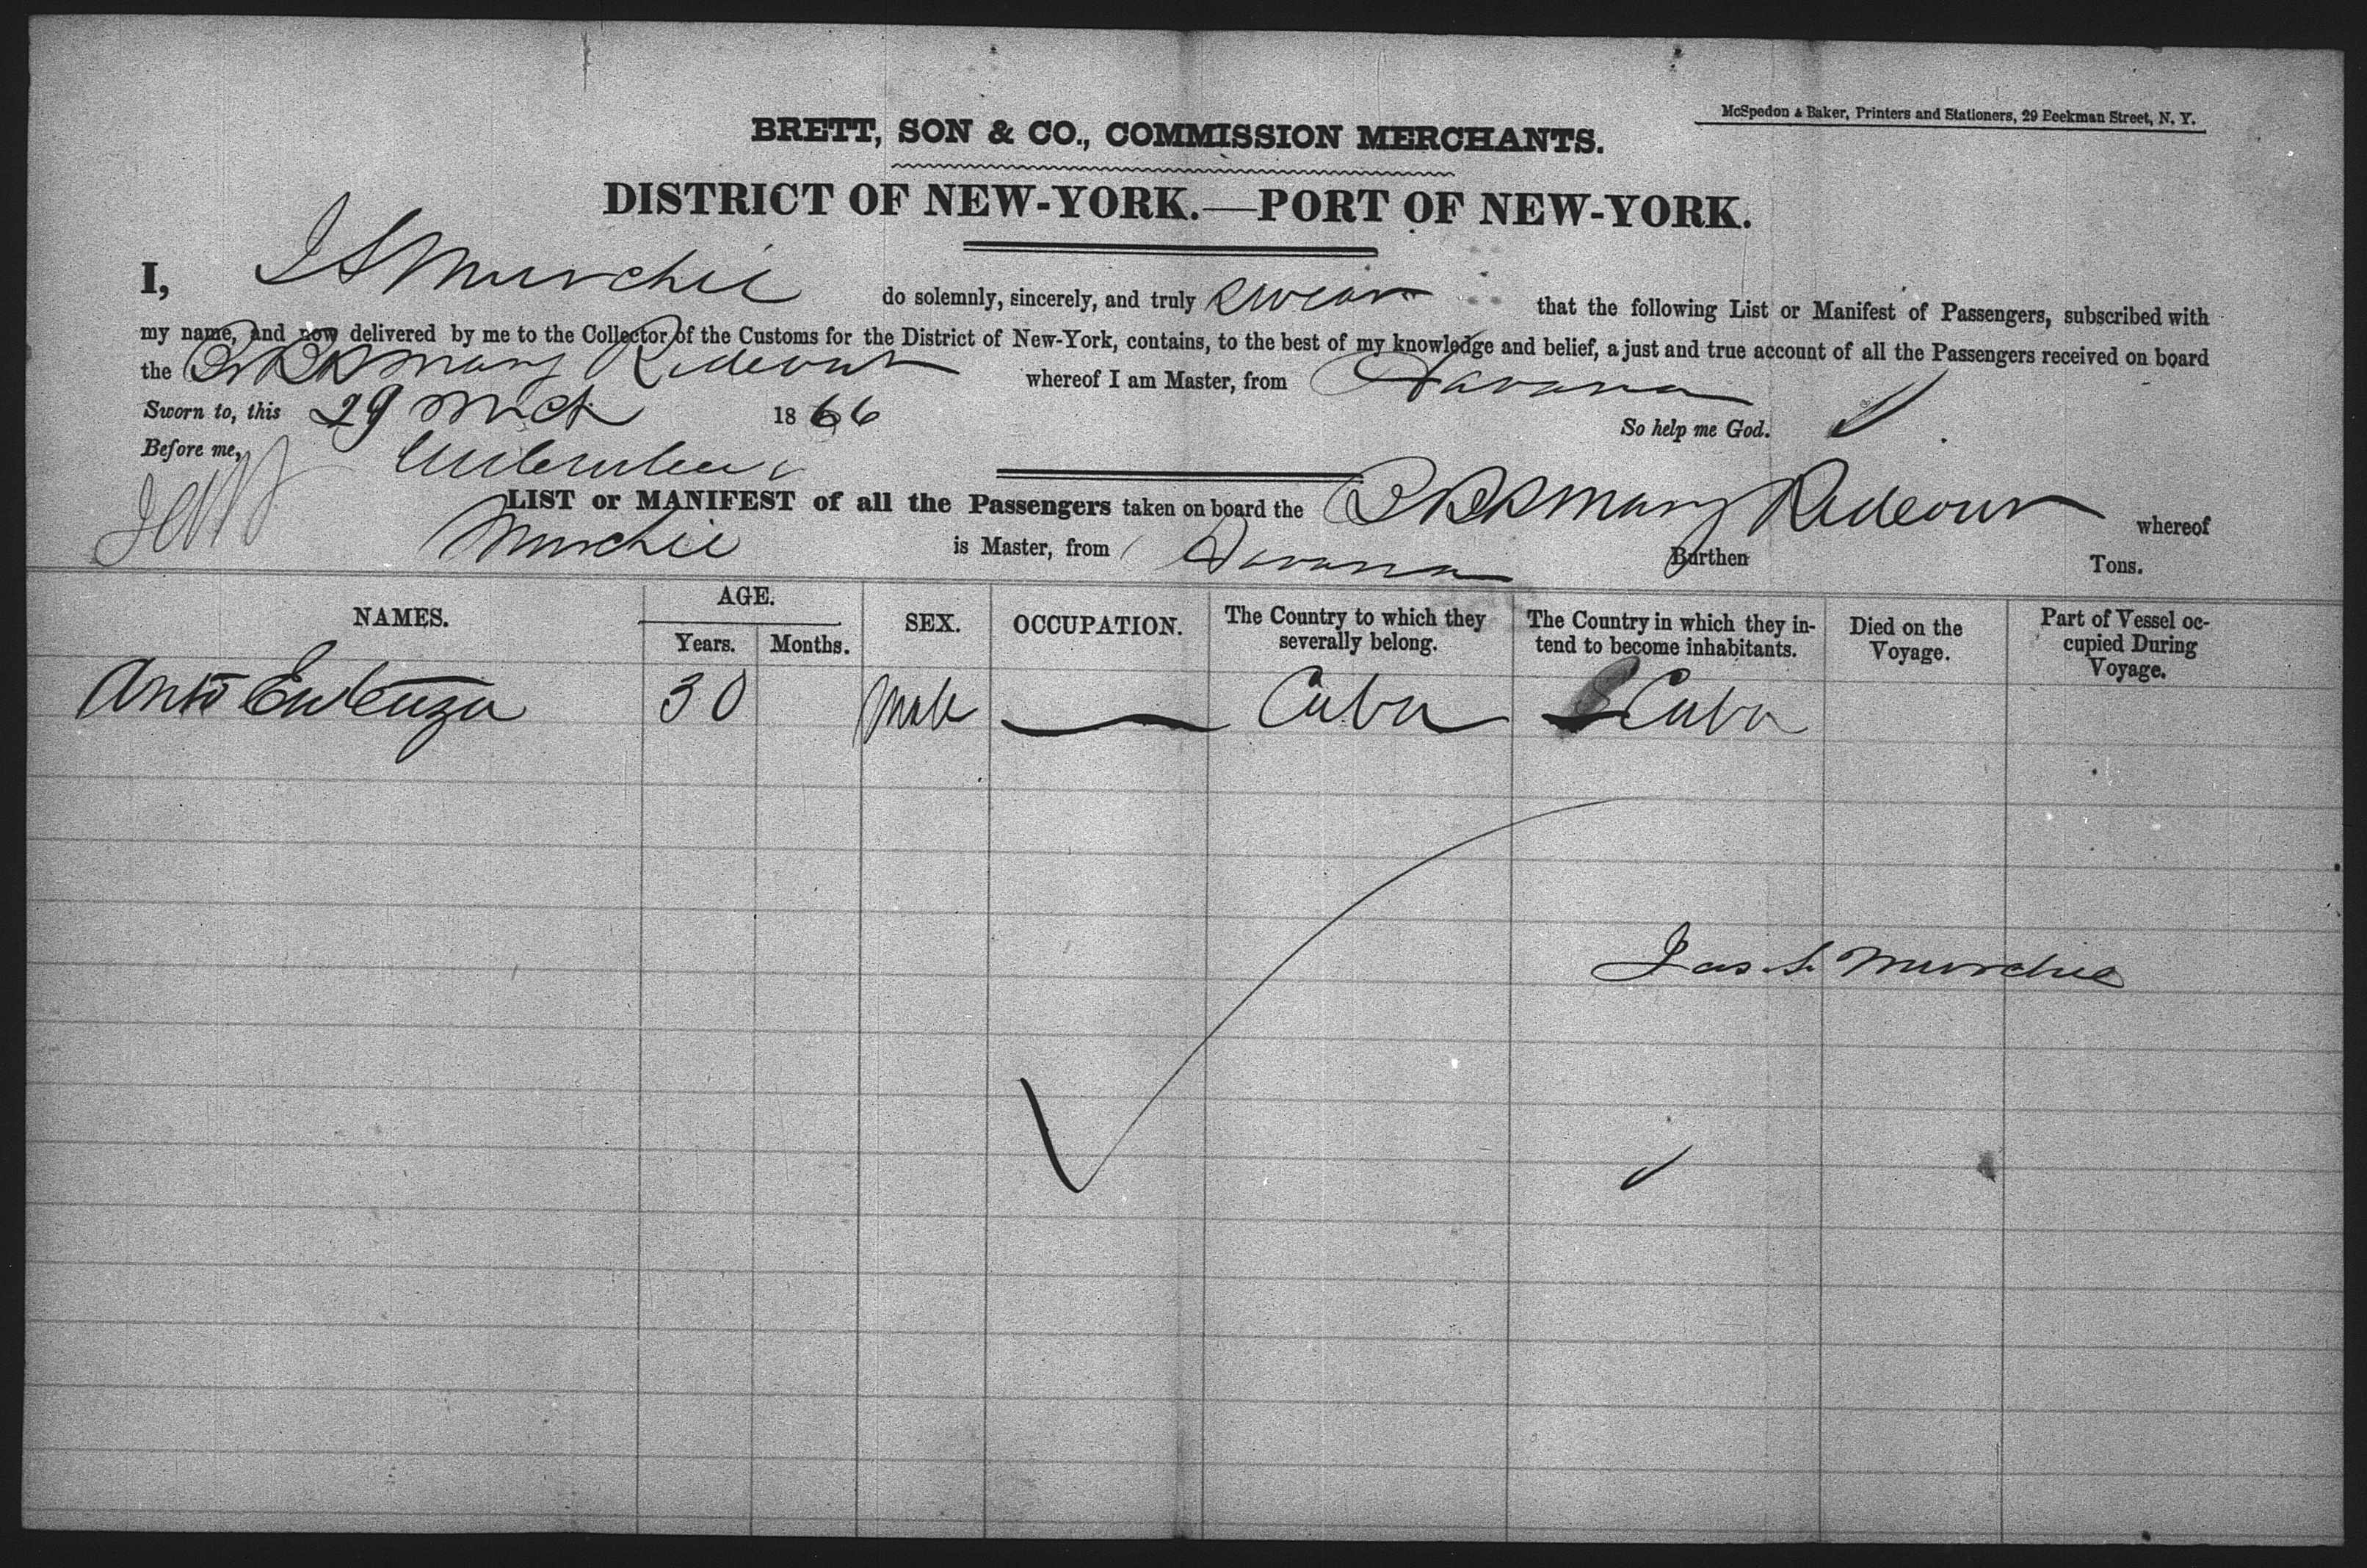 McSpedon & Baker, Printers and Stationers, 29 Beekman Street, N. Y.
BRETT, SON & CO., COMMISSION MERCHANTS.
DISTRICT OF NEW-YORK.—PORT OF NEW-YORK.
I, J S Murchie do solemnly, sincerely, and truly swear that the following List or Manifest of Passengers, subscribed with
my name, and now delivered by me to the Collector of the Customs for the District of New-York, contains, to the best of my knowledge and belief, a just and true account of all the Passengers received on board
the Mary Rideout whereof I am Master, from Havana
Sworn to, this 29 Mch 1866 So help me God.
Before me,
LIST or MANIFEST of all the Passengers taken on board the Mary Rideout whereof
Murchie is Master, from Havana Burthen Tons.
NAMES. AGE. Years. Months. SEX. OCCUPATION. The Country to which they severally belong. The Country in which they intend to become inhabitants. Died on the Voyage. Part of Vessel occupied During Voyage.
Anto 30 Male Cuba Cuba
Jas. S. Murchie